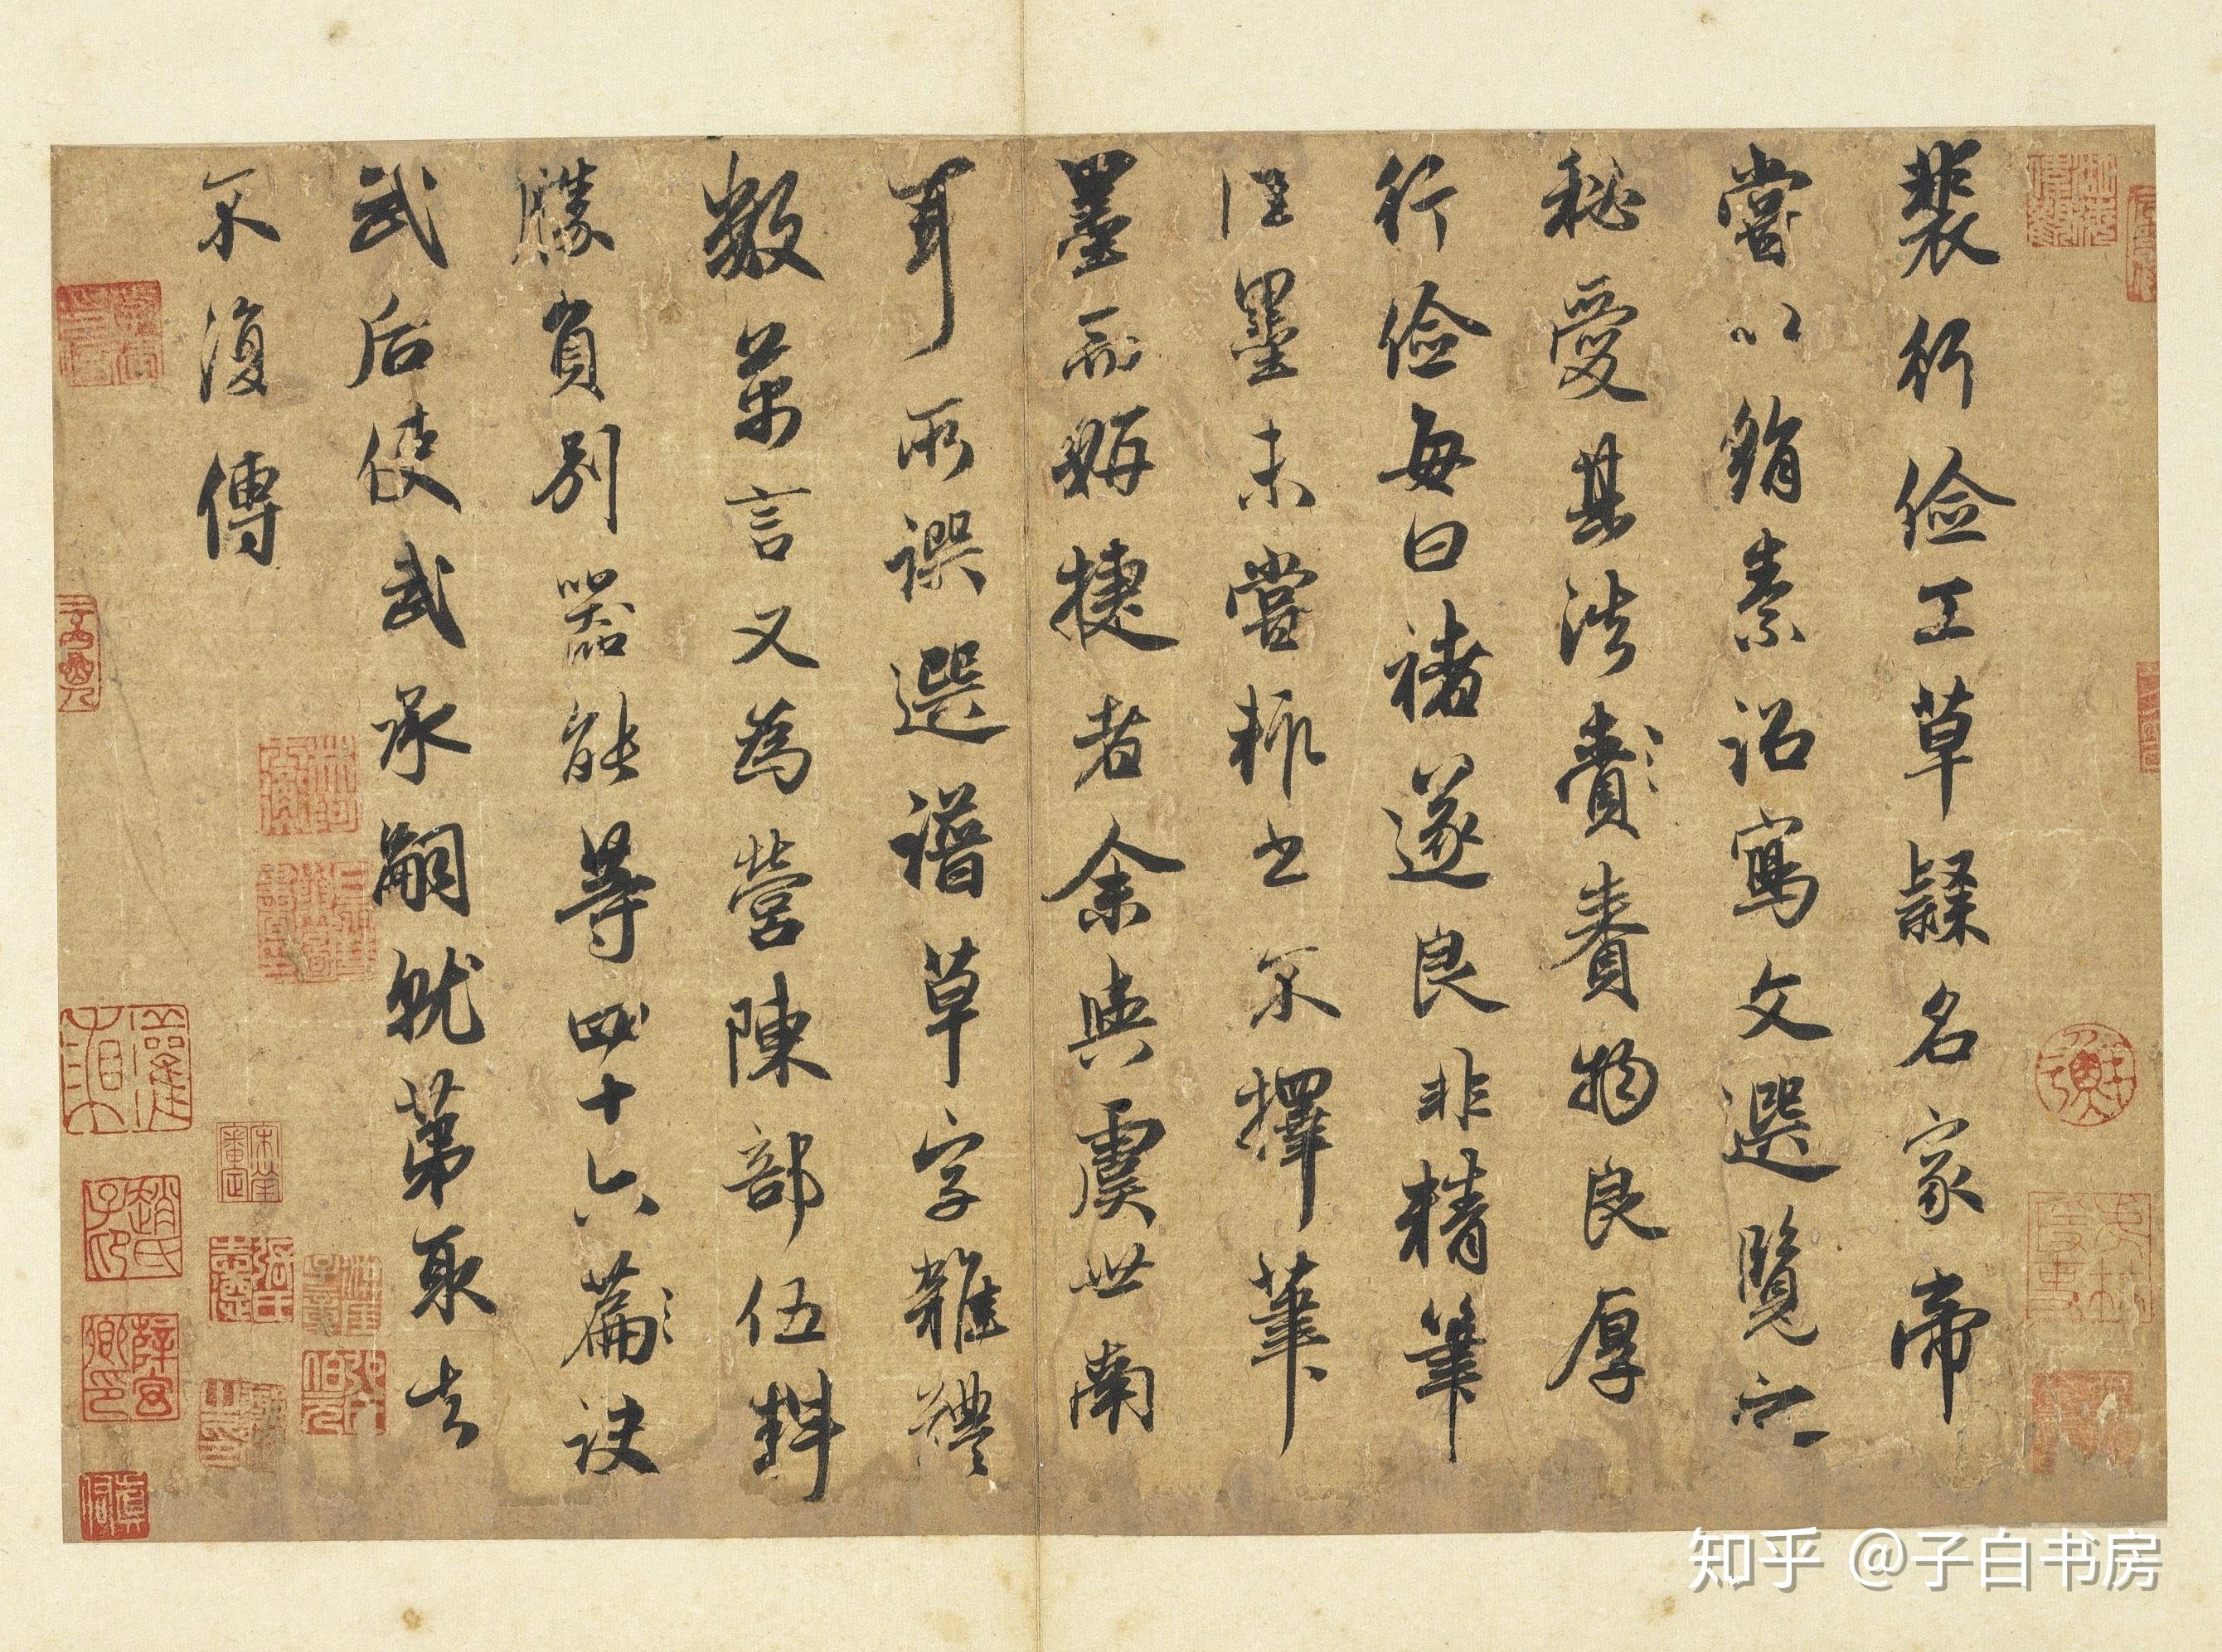 裴行俭工草隸名家帝
嘗以絹素詔寫文選覽之
秘愛其法賚〻賚物良厚
行俭每曰褚遂良非精筆
佳墨未嘗輒書不擇筆
墨而妍捷者余與虞世南
耳所譔選譜草字雜體
數萬言又為營陳部伍料
勝負別器能等四十六篇〻訣
武后使武承嗣就第取去
不復傳
知乎 @子白书房